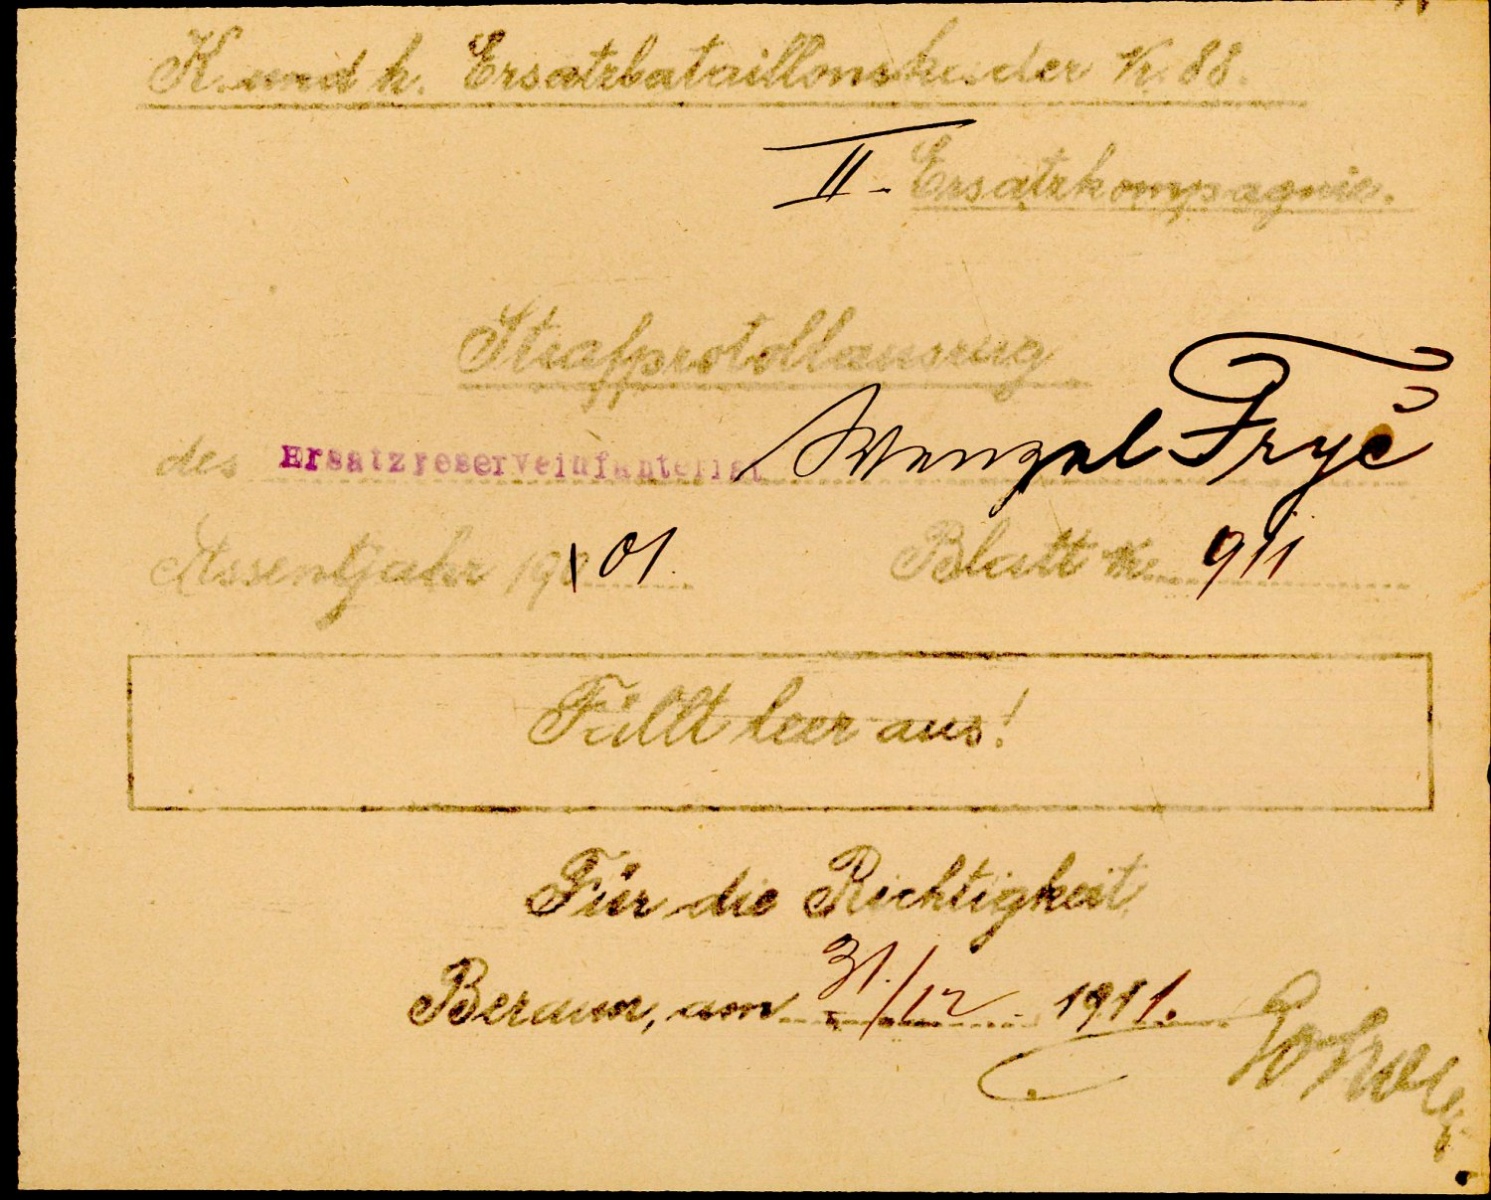 K. und k. Ersatzbataillonskader Nr. 88.
II. Ersatzkompagnie.
Strafprotokllauszug
des Ersatzreserveinfanterist Wenzel Fryč
Assentjahr 190 01. Blatt Nr. 911
Füllt leer aus!
Für die Richtigkeit
Beraun, am 31./12 1911.